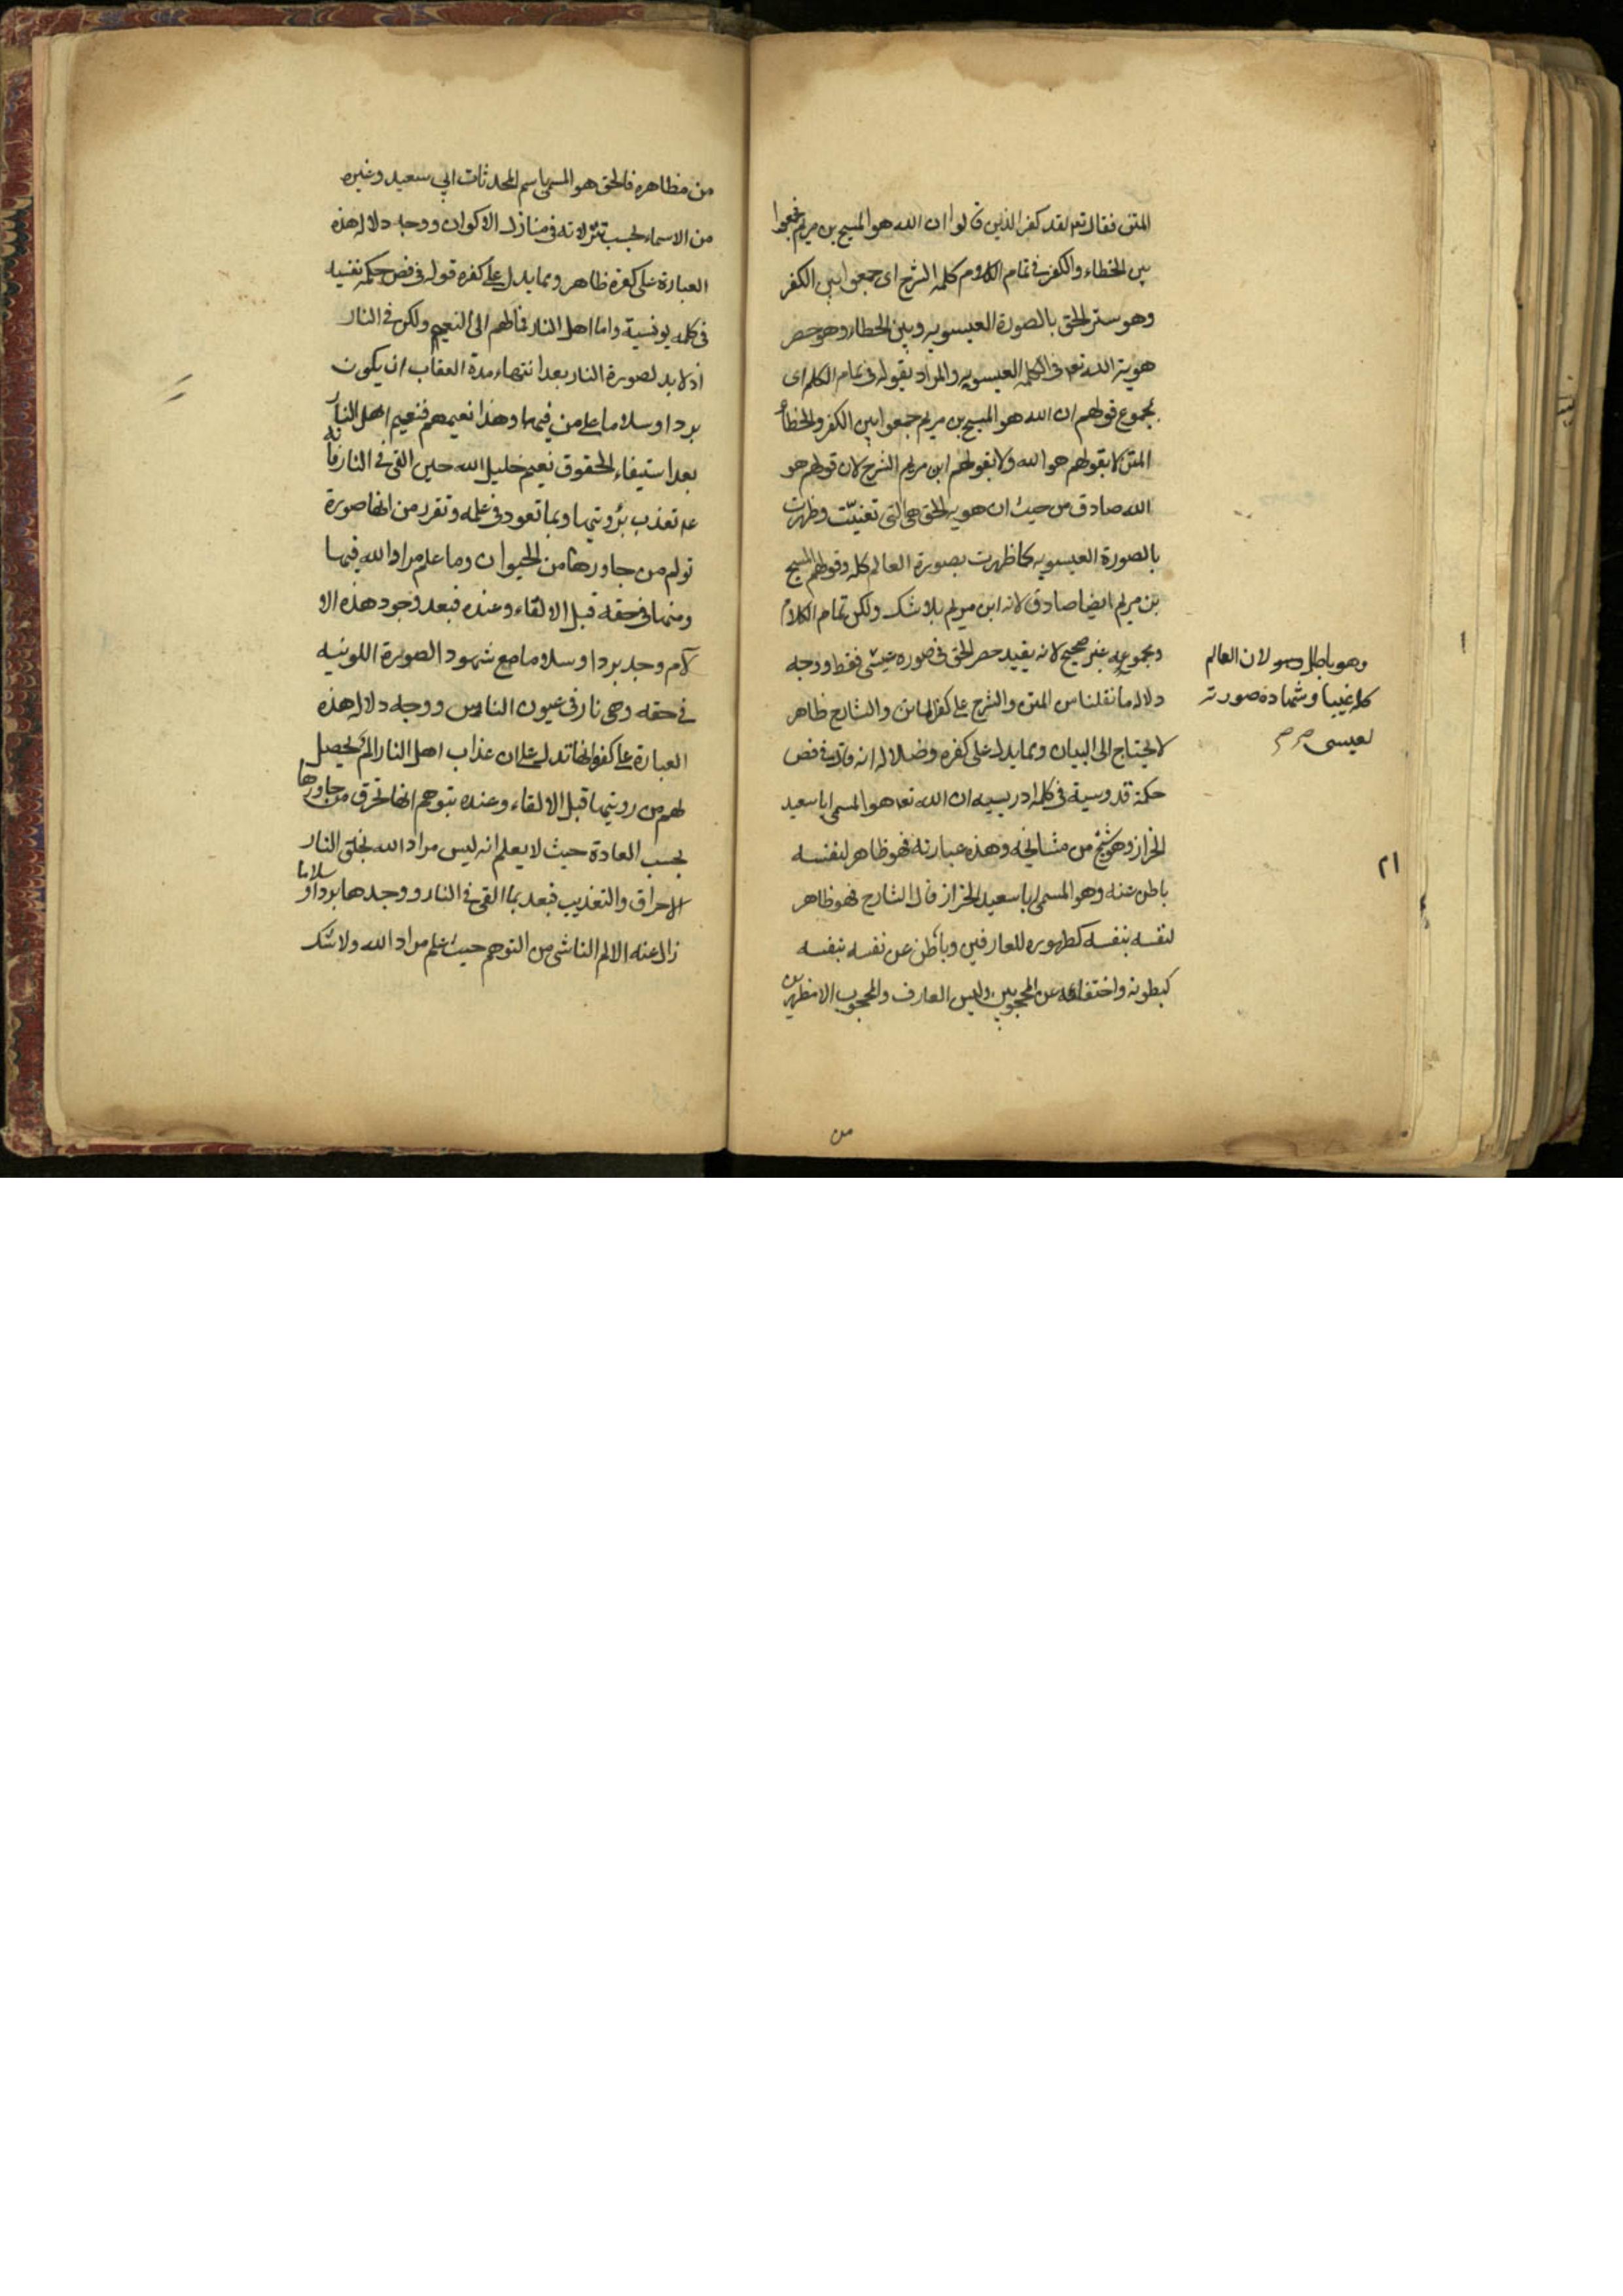 المتن فقال تعالى لقد كفر الذين قالوا ان الله هو المسيح بن مريم فجمعوا
بين الخطاء والكفر في تمام الكلام كله الشرح اى جمعوا بين الكفر
وهو ستر الحق بالصورة العيسويه وبين الخطاء وهو حصر
هوية الله تعا فى الكلمه العيسويه والمراد بقوله فى تمام الكلام اى
بمجموع قولهم ان الله هو المسيح بن مريم جمعوا بين الكفر والخطأ
المتن لا بقولهم هو الله ولا بقولهم ابن مريم الشرح لان قولهم هو
الله صادق من حيث ان هويه الحق هى التى تعينت وظهرت
بالصورة العيسويه كما ظهرت بصورة العالم كله وقولهم المسيح
بن مريم ايضا صادق لانه ابن مريم بلا شك ولكن تمام الكلام
ومجموعه غير صحيح لانه يفيد حصر الحق فى صوره عيسى فقط ووجه
وهو باطل لان العالم
كله غيبا وشهادة صورته
لعيسى
دلاله ما نقلنا من المتن والشرح على كفر الماتن والشارح ظاهر
لا يحتاج الى البيان ومما يدل على كفره وضلاله انه قال فى فص
حكمة قدوسية فى كلمه ادريسيه ان الله تعا هو المسمى ابا سعيد
الخراز وهو شيخ من مشايخه وهذه عبارته فهو ظاهر لنفسه
٢١
باطن عنه وهو المسمى ابا سعيد الخراز قال الشارح فهو ظاهر
لنفسه بنفسه كظهوره للعارفين وباطن عن نفسه بنفسه
كبطونه واختفائه عن المحجوبين وليس العارف والمحجوب الا مظهرين
من
من مظاهره فالحق هو المسمى باسم المحدثات ابى سعيد وغيره
من الاسماء بحسب تنزلاته فى منازل الاكوان ووجه دلاله هذه
العبارة على كفره ظاهر ومما يدل على كفره قوله فى فص حكمه نفسيه
فى كلمه يونسية واما اهل النار فمآلهم الى النعيم ولكن فى النار
اذ لا بد لصورة النار بعد انتهاء مدة العقاب ان يكون
بردا وسلاما على من فيها وهذا نعيمهم فنعيم اهل النار
بعد استيفاء الحقوق نعيم خليل الله حين القى فى النار فانه
عم تعذب برؤيتها وبما تعود فى علمه وتقرر من انها صورة
تولم من جاورها من الحيوان وما علم مراد الله فيها
ومنها فى حقه قبل الالقاء وعنده فبعد وجود هذه الا
لام وجد بردا وسلاما مع شهود الصورة اللونيه
فى حقه وهى نار فى عيون الناس ووجه دلاله هذه
العبارة على كفره انها تدل على ان عذاب اهل النار الم يحصل
لهم من رويتها قبل الالقاء وعنده بتوهم انها تحرق من جاورها
بحسب العادة حيث لا يعلم انه ليس مراد الله بخلق النار
الاحراق والتعذيب فبعد ما القى فى النار ووجدها بردا وسلاما
زال عنه الالم الناشى من التوهم حيث علم مراد الله ولا شك